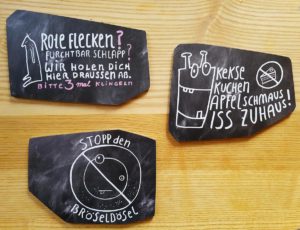 ROTE FLECKEN?
FURCHTBAR SCHLAPP?
WIR HOLEN DICH
HIER DRAUSSEN AB.
BITTE 3 mal KLINGELN
KEKSE
KUCHEN
APFELSCHMAUS
ISS ZUHAUS!
STOPP den
BRÖSELDÖSEL